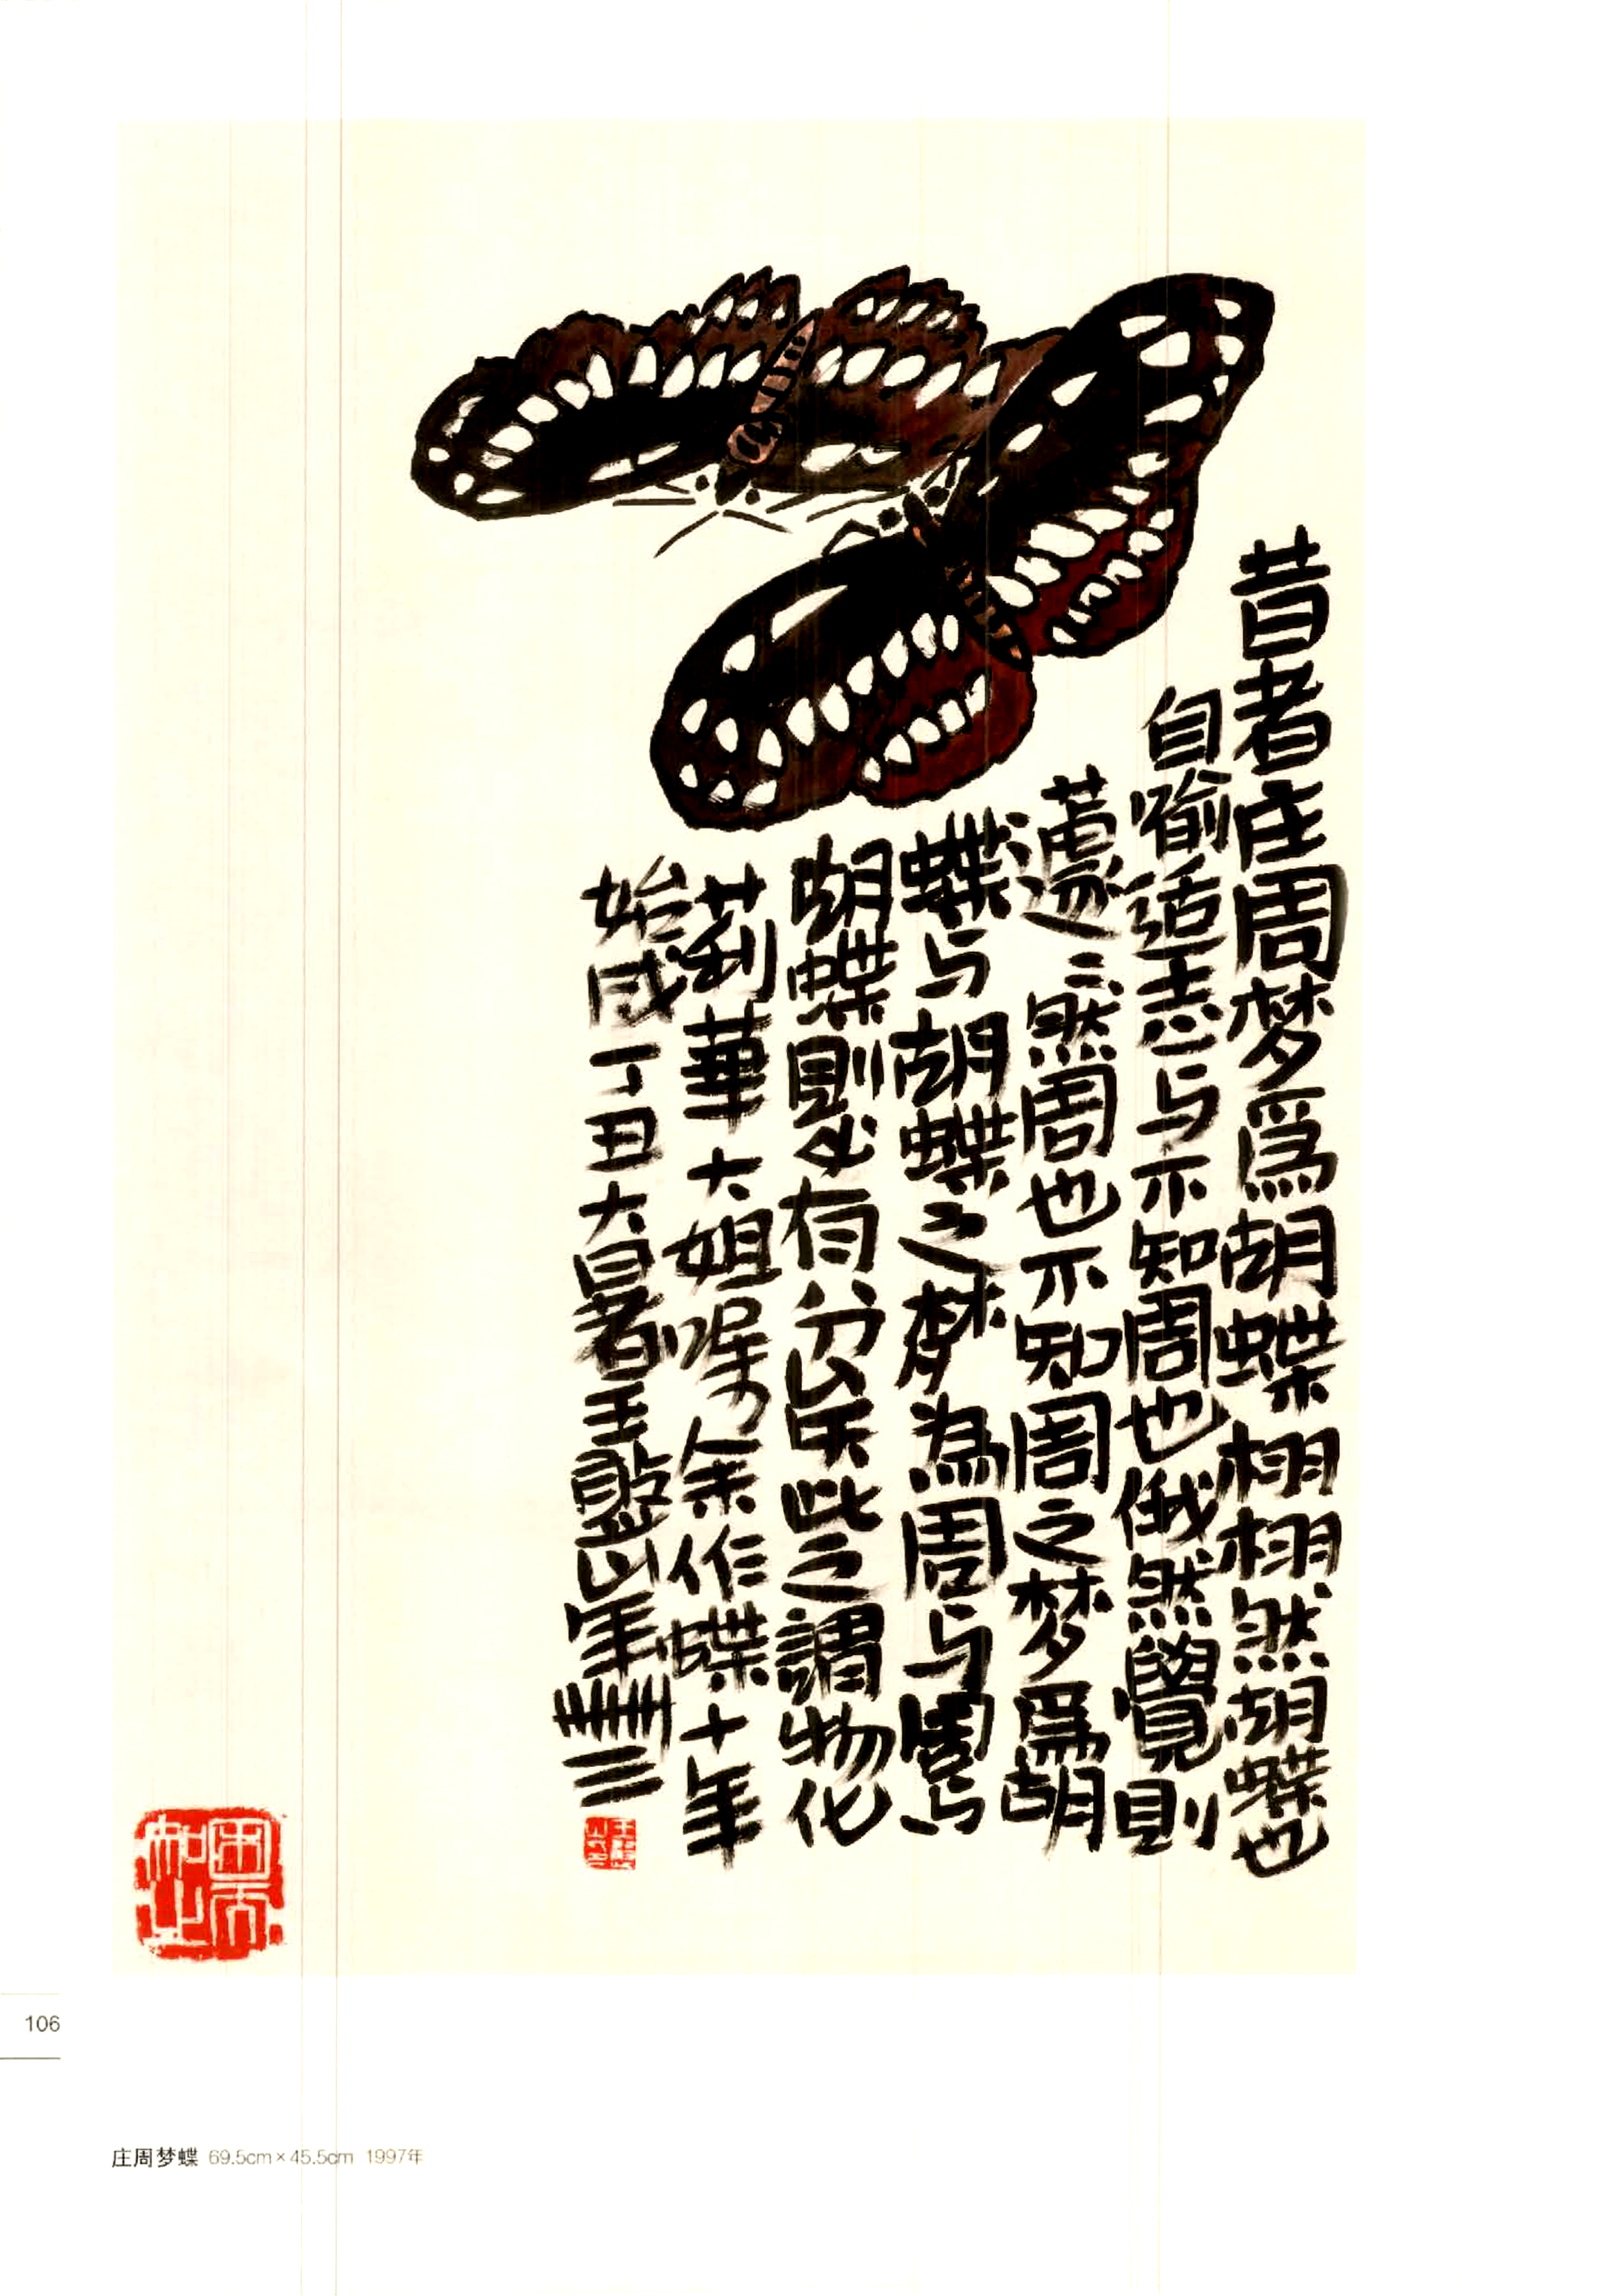 昔者庄周梦爲胡蝶栩栩然胡蝶也
自喻适志与不知周也俄然覺則
蘧〻然周也不知周之梦爲胡
蝶与胡蝶之梦為周与周与
胡蝶則必有分矣此之謂物化
華大姐嘱余作蝶十年
始成丁丑大暑王憨山年三
106
庄周梦蝶 69.5cm×45.5cm 1997年